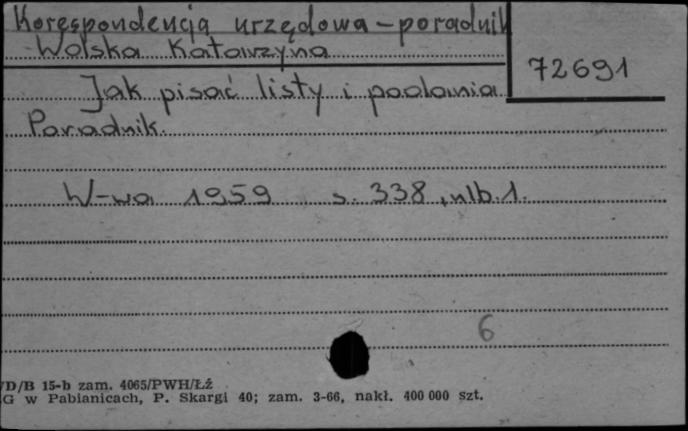 Korespondencja urzędowa – poradnik
Wolska Katarzyna
72691
Jak pisać listy i podania
Poradnik.
W-wa 1959 s. 338, nlb. 1.
6
/D/B 15-b zam. 4065/PWH/ŁŹ
G w Pabianicach, P. Skargi 40; zam. 3-66, nakł. 400 000 szt.